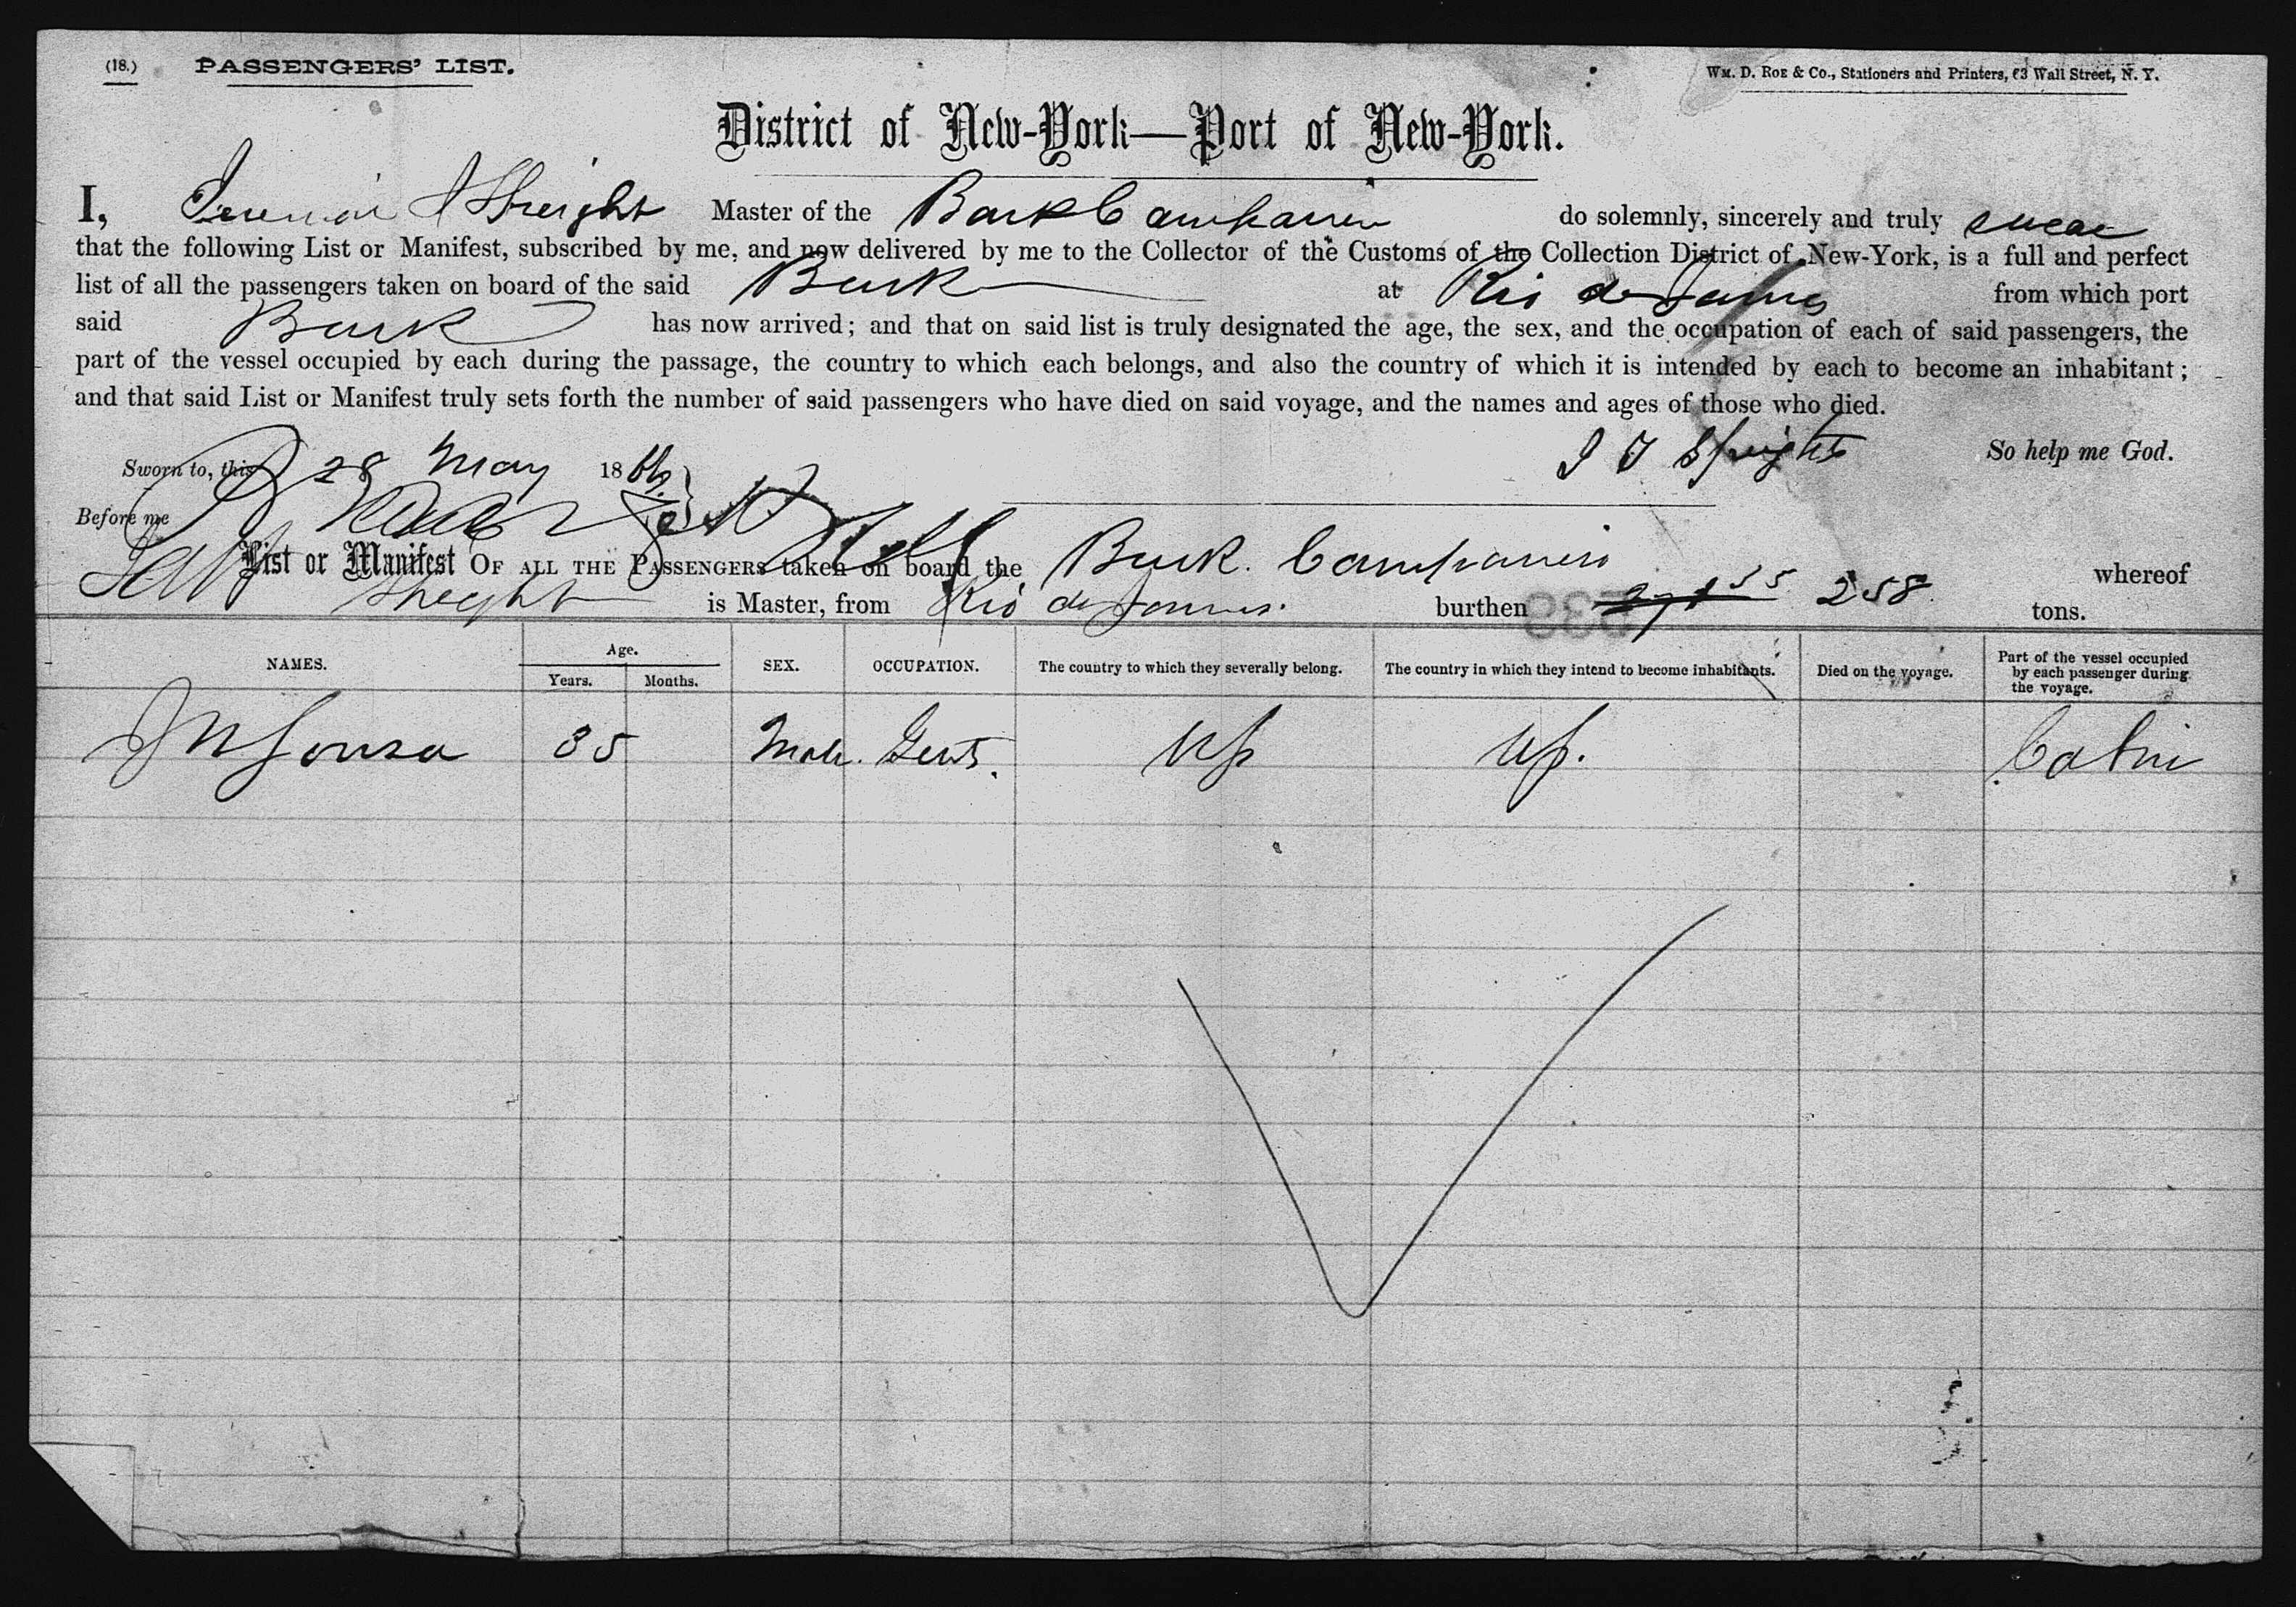 (18.) PASSENGERS' LIST. WM. D. ROE & CO., Stationers and Printers, 63 Wall Street, N. Y.
District of New-York—Port of New-York.
I, Master of the Bark do solemnly, sincerely and truly swear
that the following List or Manifest, subscribed by me, and now delivered by me to the Collector of the Customs of the Collection District of New-York, is a full and perfect
list of all the passengers taken on board of the said Bark at Rio de from which port
said Bark has now arrived; and that on said list is truly designated the age, the sex, and the occupation of each of said passengers, the
part of the vessel occupied by each during the passage, the country to which each belongs, and also the country of which it is intended by each to become an inhabitant;
and that said List or Manifest truly sets forth the number of said passengers who have died on said voyage, and the names and ages of those who died.
So help me God.
Sworn to, this 28 May 1866
Before me
List or Manifest OF ALL THE PASSENGERS taken on board the Bark. whereof
is Master, from Rio de burthen 258 tons.
NAMES. Age. SEX. OCCUPATION. The country to which they severally belong. The country in which they intend to become inhabitants. Died on the voyage. Part of the vessel occupied by each passenger during the voyage.
Years. Months.
Sousa 35 Male. Gent. US US. Cabin